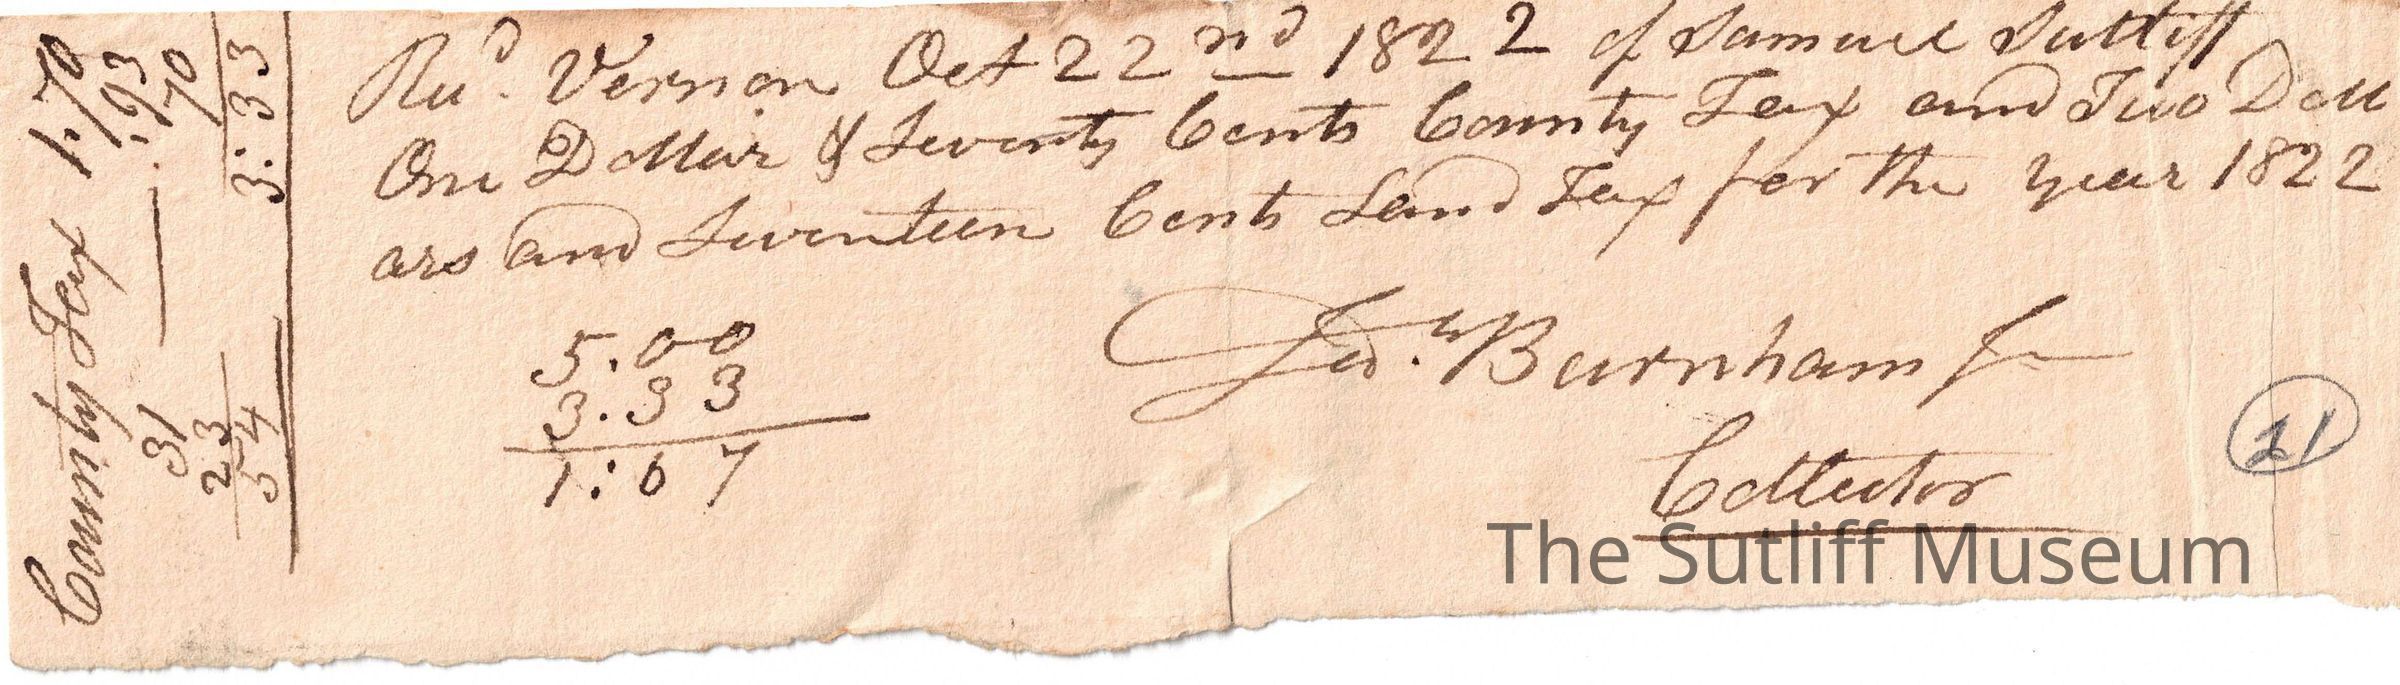 Rec^d. Vernon Oct 22^nd 1822 of Samuel Sutliff
One Dollar & Seventy Cents County Tax and Two Doll
ars and Seventeen Cents Land Tax for the year 1822
Jed.^h Burnham Jr
Collector
5.00
3.33
1:67
21
County Tax 1.70
.93
.70
3:33
31
23
54
The Sutliff Museum